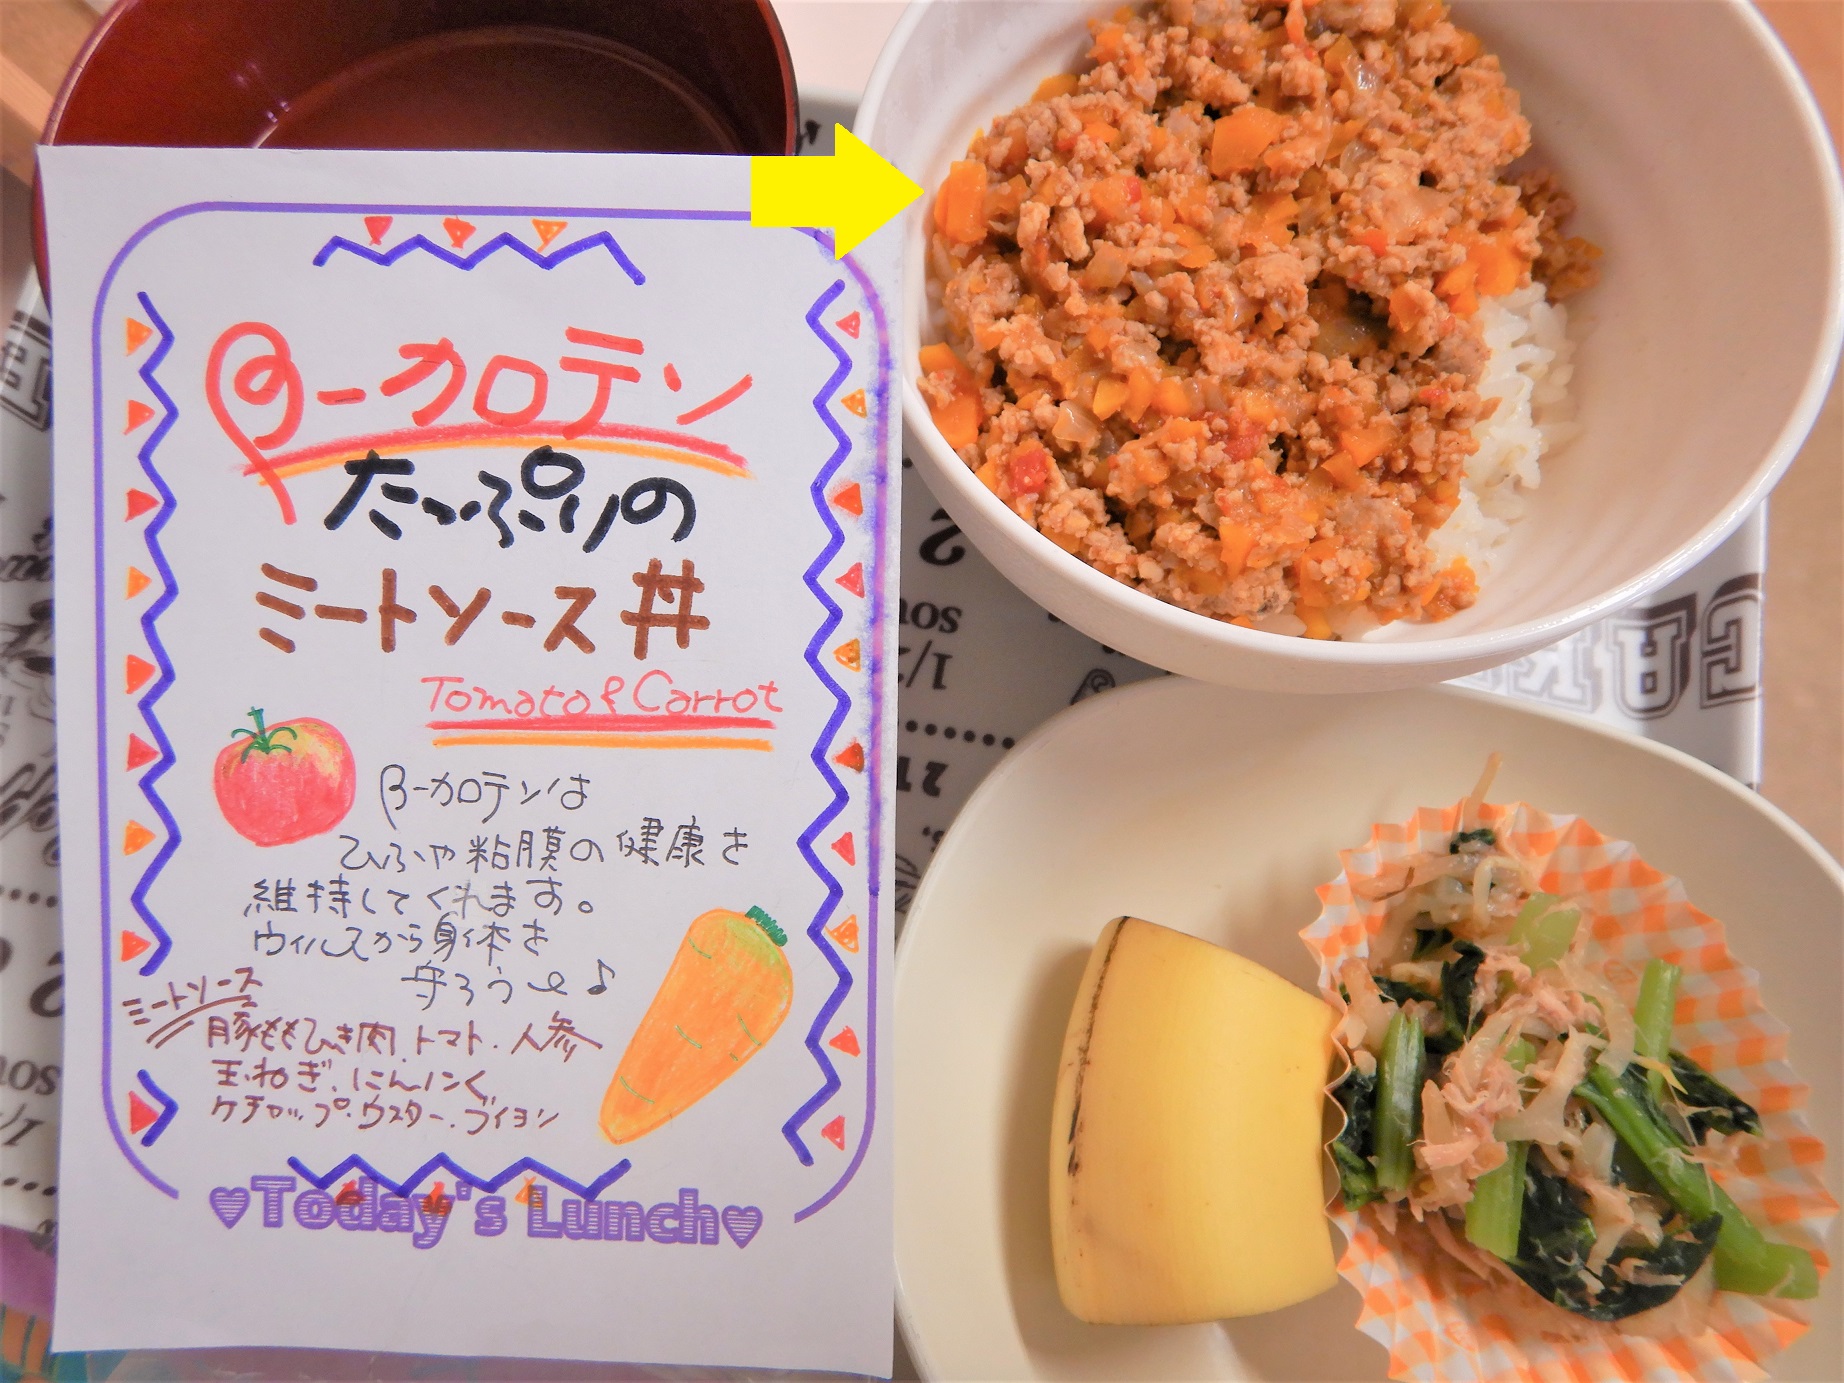 β-カロテン
たっぷりの
ミートソース丼
Tomato & Carrot
β-カロテンは
ひふや粘膜の健康を
維持してくれます。
ウィルスから身体を
守ろう♪
ミートソース
豚ももひき肉.トマト.人参
玉ねぎ.にんにく
ケチャップ.ウスター.ブイヨン
♥Today's Lunch♥
CAK
2
1/2